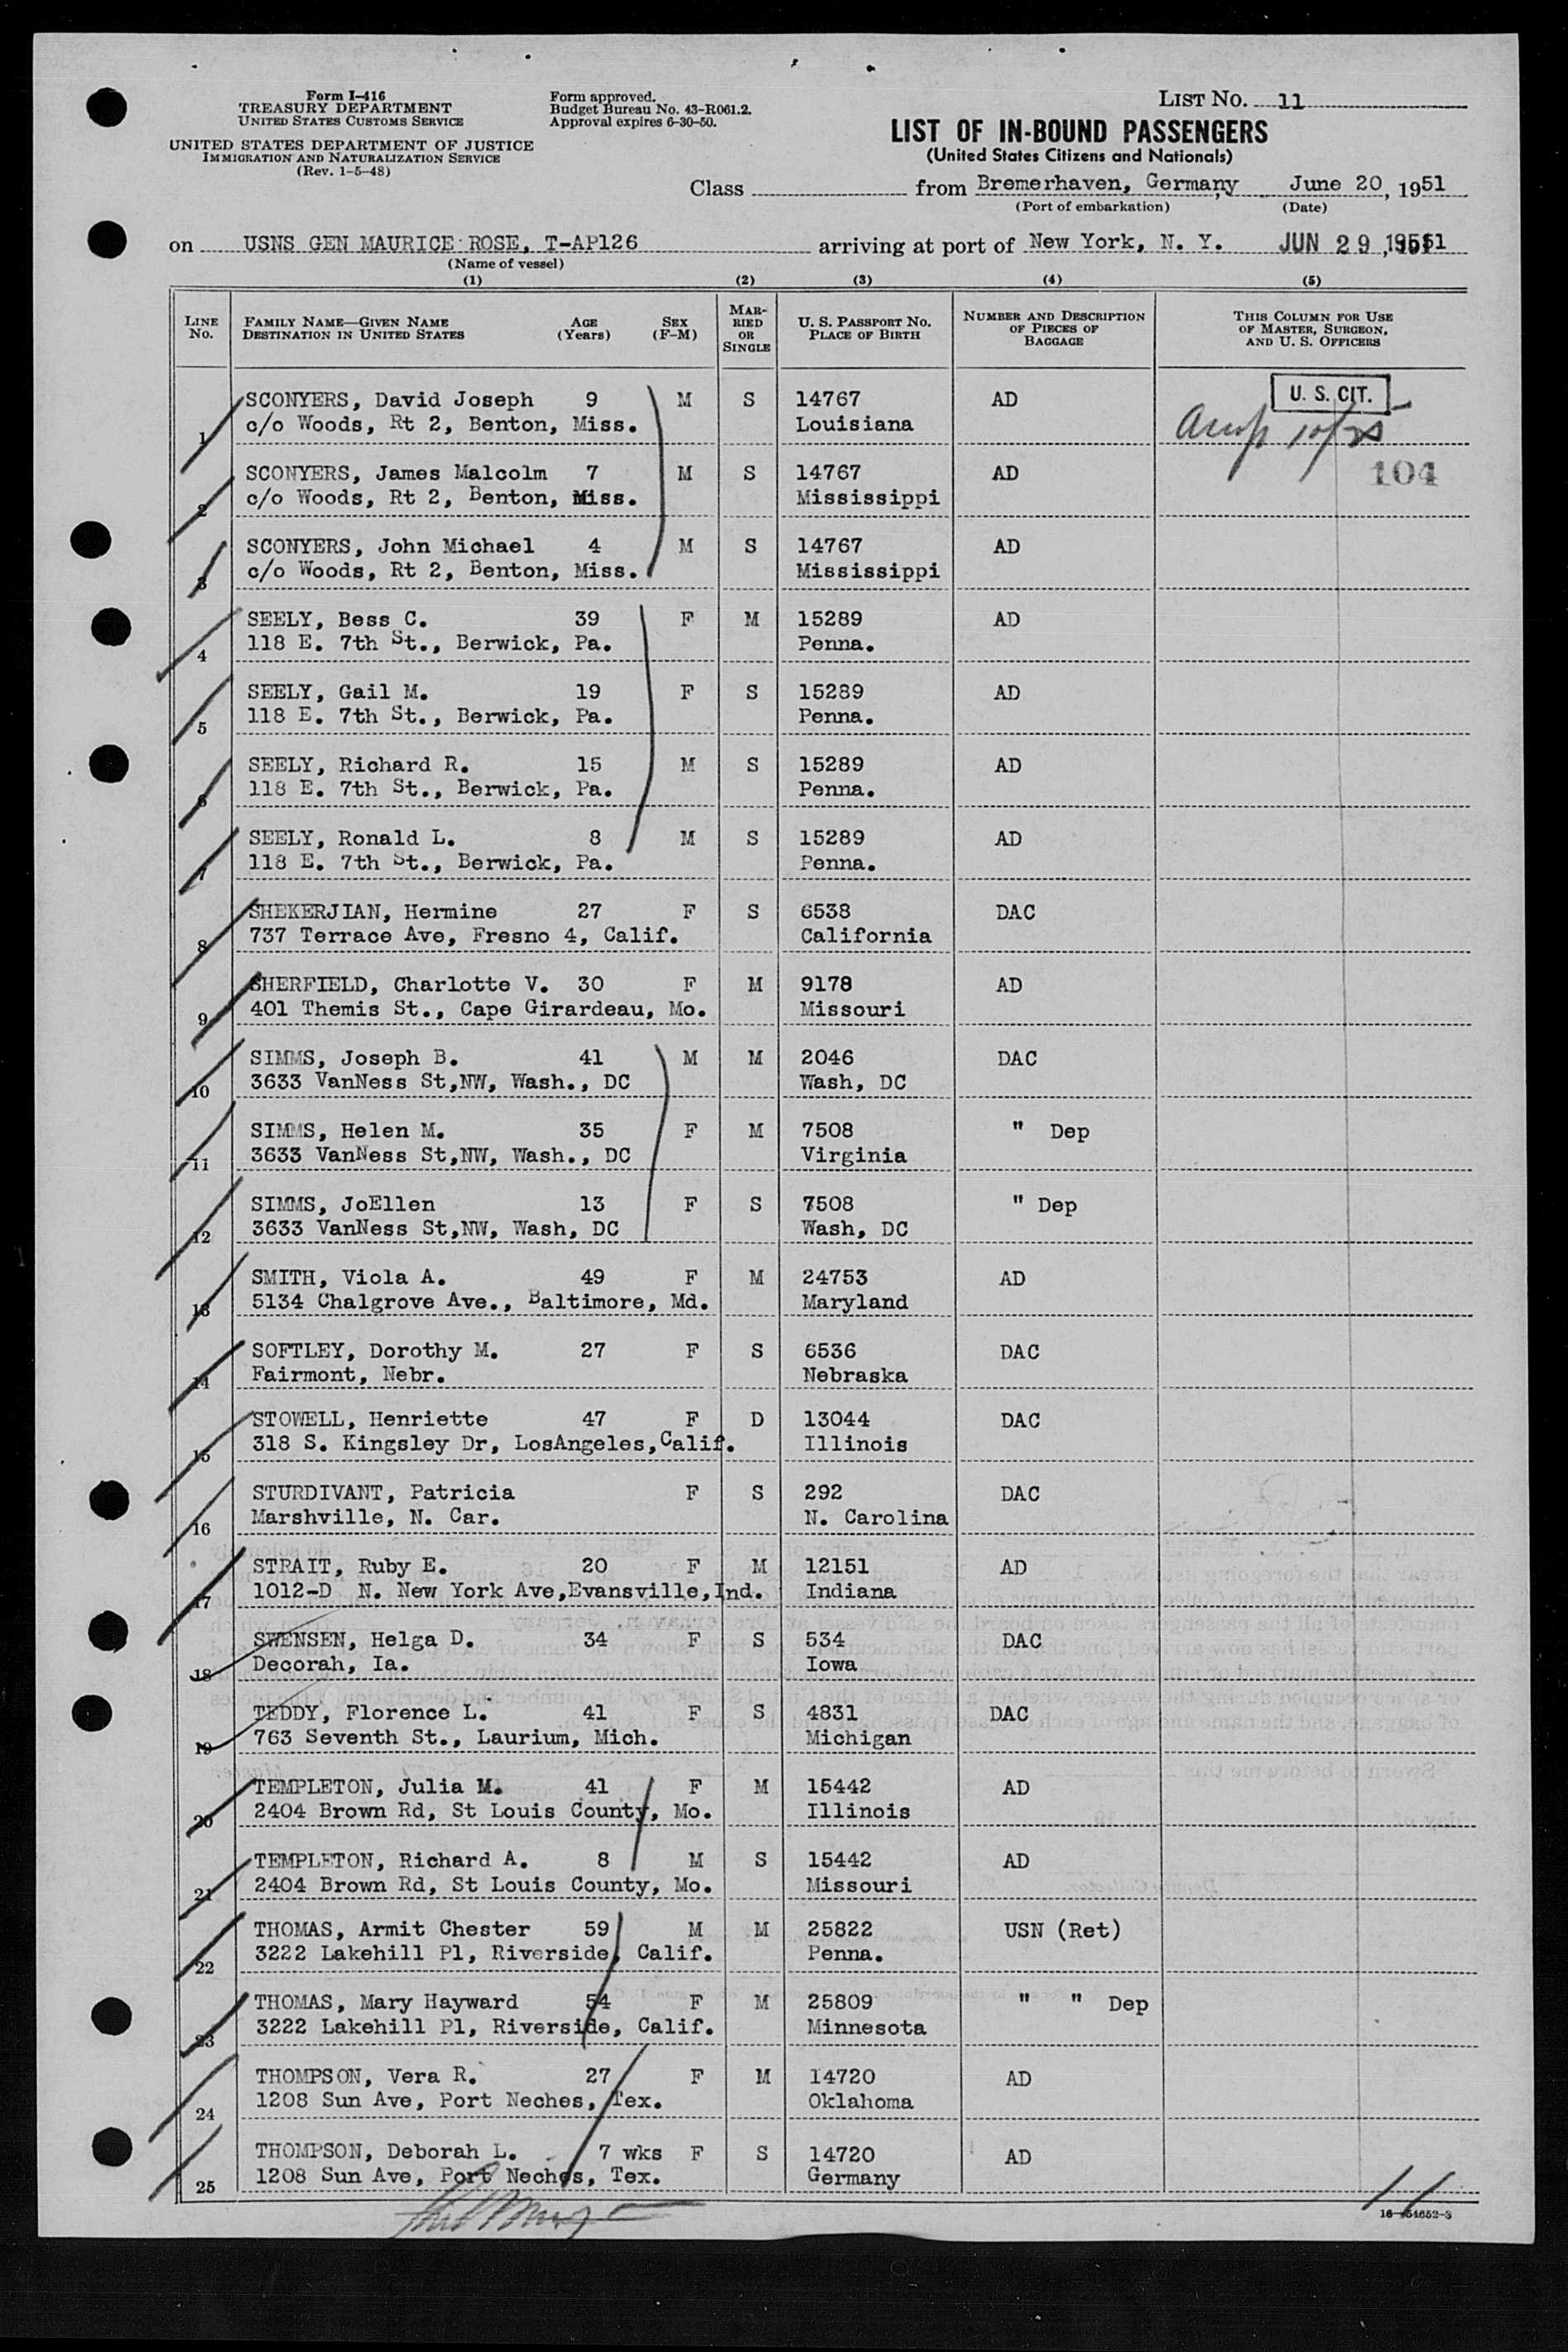 Form I-416
TREASURY DEPARTMENT
UNITED STATES CUSTOMS SERVICE
UNITED STATES DEPARTMENT OF JUSTICE
IMMIGRATION AND NATURALIZATION SERVICE
(Rev. 1-5-48)
Form approved.
Budget Bureau No. 43-R061.2.
Approval expires 6-30-50.
LIST NO. 11
LIST OF IN-BOUND PASSENGERS
(United States Citizens and Nationals)
Class from Bremerhaven, Germany, June 20, 1951
(Port of embarkation) (Date)
on USNS GEN MAURICE ROSE, T-AP126 arriving at port of New York, N. Y. JUN 29, 1951
(Name of vessel)
(1) (2) (3) (4) (5)
LINE NO. FAMILY NAME—GIVEN NAME DESTINATION IN UNITED STATES AGE (Years) SEX (F-M) MARRIED OR SINGLE U. S. PASSPORT NO. PLACE OF BIRTH NUMBER AND DESCRIPTION OF PIECES OF BAGGAGE THIS COLUMN FOR USE OF MASTER, SURGEON, AND U. S. OFFICERS
SCONYERS, David Joseph 9 M S 14767 AD U. S. CIT.
1 c/o Woods, Rt 2, Benton, Miss. Louisiana
SCONYERS, James Malcolm 7 M S 14767 AD 104
2 c/o Woods, Rt 2, Benton, Miss. Mississippi
SCONYERS, John Michael 4 M S 14767 AD
3 c/o Woods, Rt 2, Benton, Miss. Mississippi
SEELY, Bess C. 39 F M 15289 AD
4 118 E. 7th St., Berwick, Pa. Penna.
SEELY, Gail M. 19 F S 15289 AD
5 118 E. 7th St., Berwick, Pa. Penna.
SEELY, Richard R. 15 M S 15289 AD
6 118 E. 7th St., Berwick, Pa. Penna.
SEELY, Ronald L. 8 M S 15289 AD
7 118 E. 7th St., Berwick, Pa. Penna.
SHEKERJIAN, Hermine 27 F S 6538 DAC
8 737 Terrace Ave, Fresno 4, Calif. California
SHERFIELD, Charlotte V. 30 F M 9178 AD
9 401 Themis St., Cape Girardeau, Mo. Missouri
SIMMS, Joseph B. 41 M M 2046 DAC
10 3633 VanNess St,NW, Wash., DC Wash, DC
SIMMS, Helen M. 35 F M 7508 " Dep
11 3633 VanNess St,NW, Wash., DC Virginia
SIMMS, JoEllen 13 F S 7508 " Dep
12 3633 VanNess St,NW, Wash, DC Wash, DC
SMITH, Viola A. 49 F M 24753 AD
13 5134 Chalgrove Ave., Baltimore, Md. Maryland
SOFTLEY, Dorothy M. 27 F S 6536 DAC
14 Fairmont, Nebr. Nebraska
STOWELL, Henriette 47 F D 13044 DAC
15 318 S. Kingsley Dr, LosAngeles,Calif. Illinois
STURDIVANT, Patricia F S 292 DAC
16 Marshville, N. Car. N. Carolina
STRAIT, Ruby E. 20 F M 12151 AD
17 1012-D N. New York Ave,Evansville,Ind. Indiana
SWENSEN, Helga D. 34 F S 534 DAC
18 Decorah, Ia. Iowa
TEDDY, Florence L. 41 F S 4831 DAC
19 763 Seventh St., Laurium, Mich. Michigan
TEMPLETON, Julia M. 41 F M 15442 AD
20 2404 Brown Rd, St Louis County, Mo. Illinois
TEMPLETON, Richard A. 8 M S 15442 AD
21 2404 Brown Rd, St Louis County, Mo. Missouri
THOMAS, Armit Chester 59 M M 25822 USN (Ret)
22 3222 Lakehill Pl, Riverside, Calif. Penna.
THOMAS, Mary Hayward 54 F M 25809 " " Dep
23 3222 Lakehill Pl, Riverside, Calif. Minnesota
THOMPSON, Vera R. 27 F M 14720 AD
24 1208 Sun Ave, Port Neches, Tex. Oklahoma
THOMPSON, Deborah L. 7 wks F S 14720 AD
25 1208 Sun Ave, Port Neches, Tex. Germany
11
16-54652-3